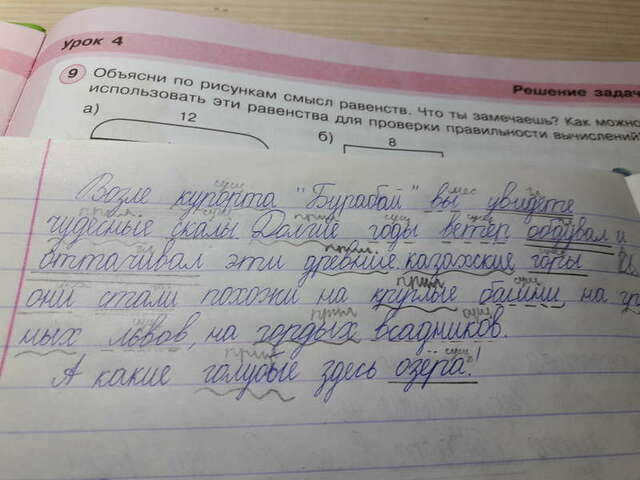 Урок 4
Решение задач
9 Объясни по рисункам смысл равенств. Что ты замечаешь? Как можно
использовать эти равенства для проверки правильности вычислений?
а) 12
б) 8
Возле курорта "Бурабай" вы увидете
сущ мес гл
чудесные скалы. Долгие годы ветер обдувал и
прил сущ прил сущ сущ
оттачивал эти древние казахские горы. И
гл прил сущ
они стали похожи на круглые башни, на
прил сущ
мых львов, на гордых всадников.
сущ прил сущ
А какие голубые здесь озёра!
прил сущ